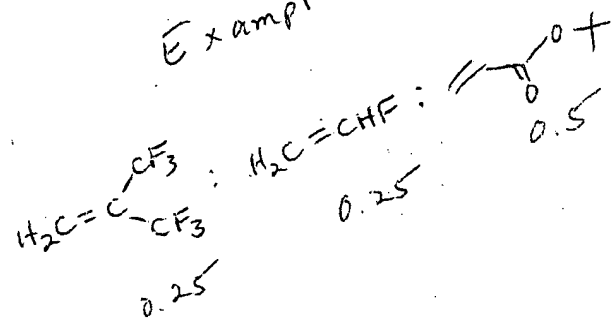 Exampl
H2C=C CF3 CF3 : H2C=CHF : O O
0.25 0.25 0.5